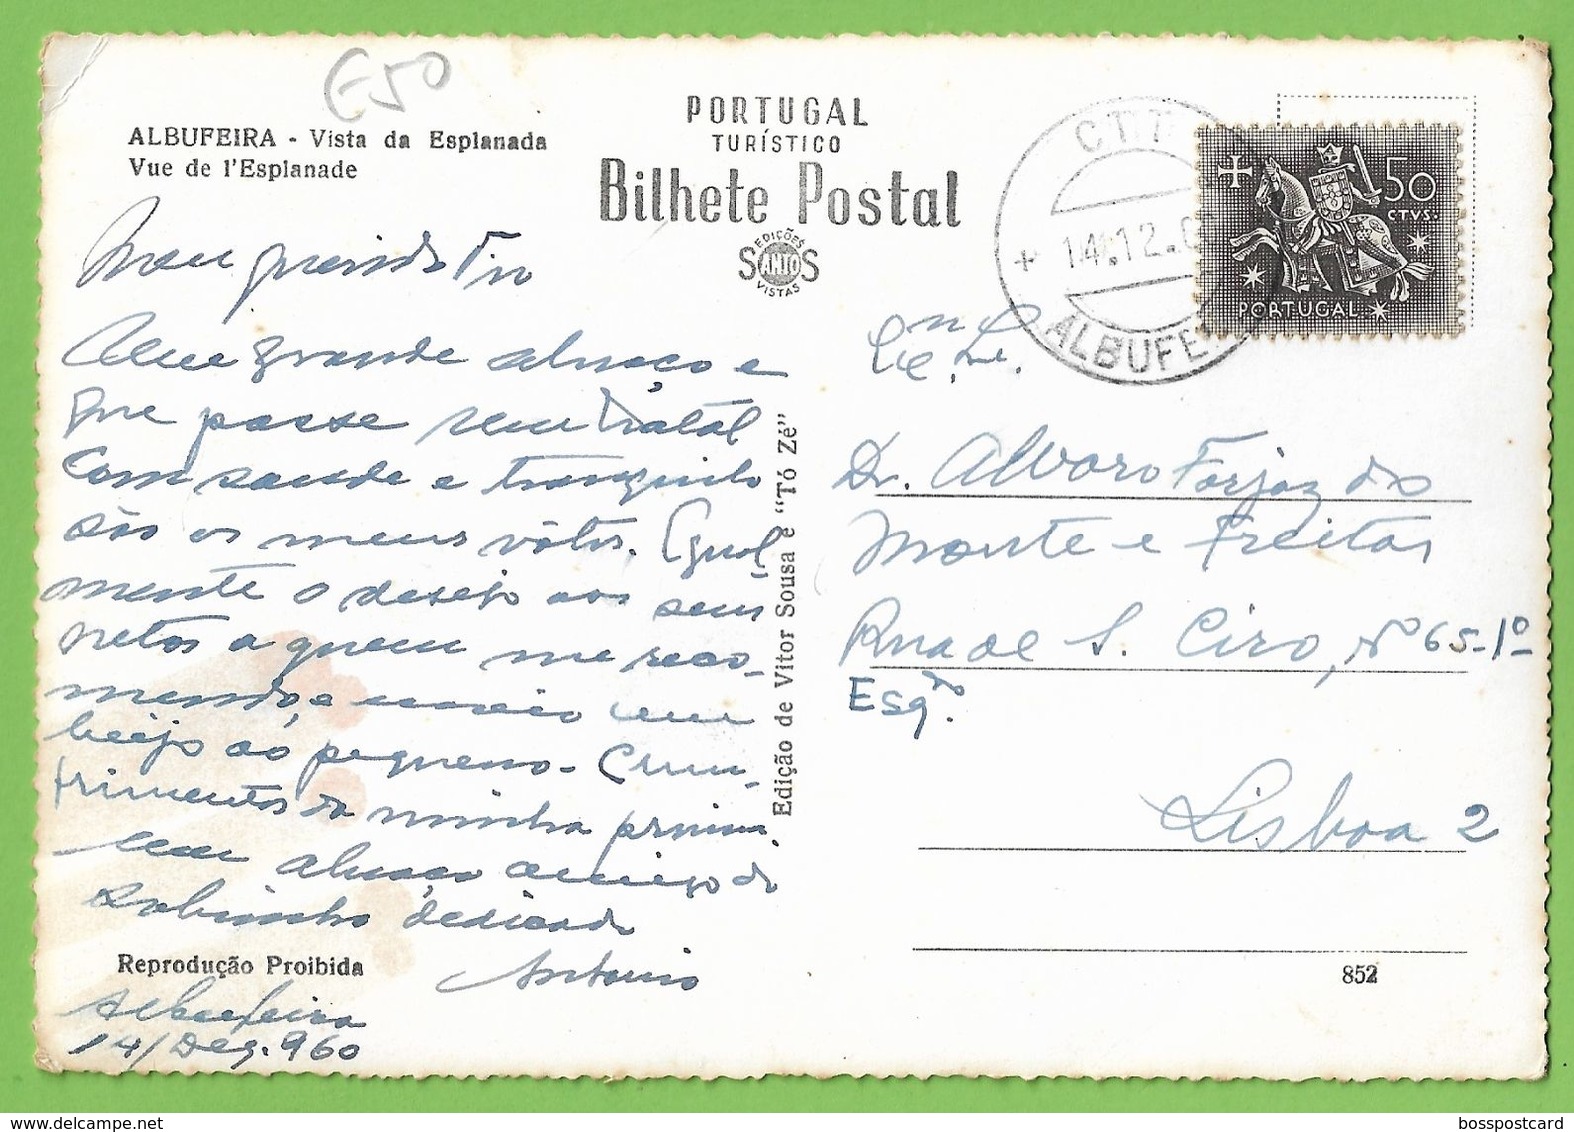 E50
ALBUFEIRA - Vista da Esplanada
Vue de l'Esplanade
PORTUGAL
TURÍSTICO
Bilhete Postal
EDIÇÕES
SANTOS
VISTAS
CTT
14.12.6
ALBUFEI
50
CTVS.
PORTUGAL
Meu querido Tio
Um grande abraço e
que passe um Natal
com saude e tranquilo
são os meus votos. Igual-
mente o desejo aos seus
netos a quem me reco-
mendo, e envio um
beijo ao pequeno. Cum-
primentos da minha prima
um abraço amigo do
Sobrinho dedicado
Antonio
Reprodução Proibida
Albufeira
14/Dez. 960
Edição de Vitor Sousa e "Tó Zé"
Ex.mo Sr.
Dr. Alvaro Forjaz do
Monte e Freitas
Rua de S. Ciro, Nº 65-1º
Esq.do
Lisboa 2
852
bosspostcard